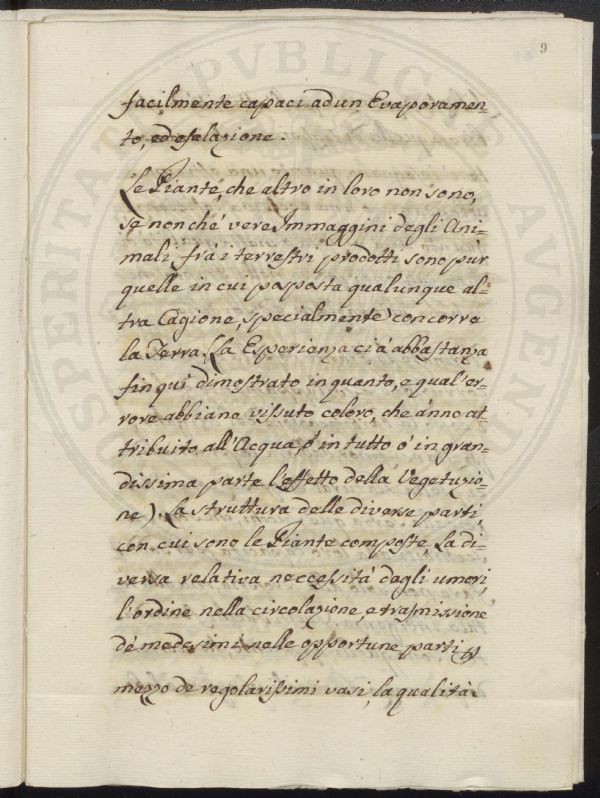 9
facilmente capaci ad un Evaporamen-
to, ed esalazione.
Le Piante, che altro in loro non sono,
se non ché vere Immaggini degli Ani-
mali, frà i terrestri prodotti sono pùr
quelle in cui posposta qualunque al-
tra Cagione, specialmente concorre
la Terra. (La Esperienza ci à abbastanza
fin quì dimostrato in quanto, e qual'er-
rore abbiano vissuto coloro, che ànno at-
tribuito all'Acqua, ò in tutto ò in gran-
dissima parte l'effetto della Vegetazio-
ne). La struttura delle diverse parti,
con cui sono le Piante composte, La di-
versa relativa neccessità degli umori,
l'ordine nella circolazione, e trasmissione
dè medesimi nelle opportune parti p
mezzo de regolarissimi vasi, la qualità
PROSPERITATI PVBLICAE AVGENDAE